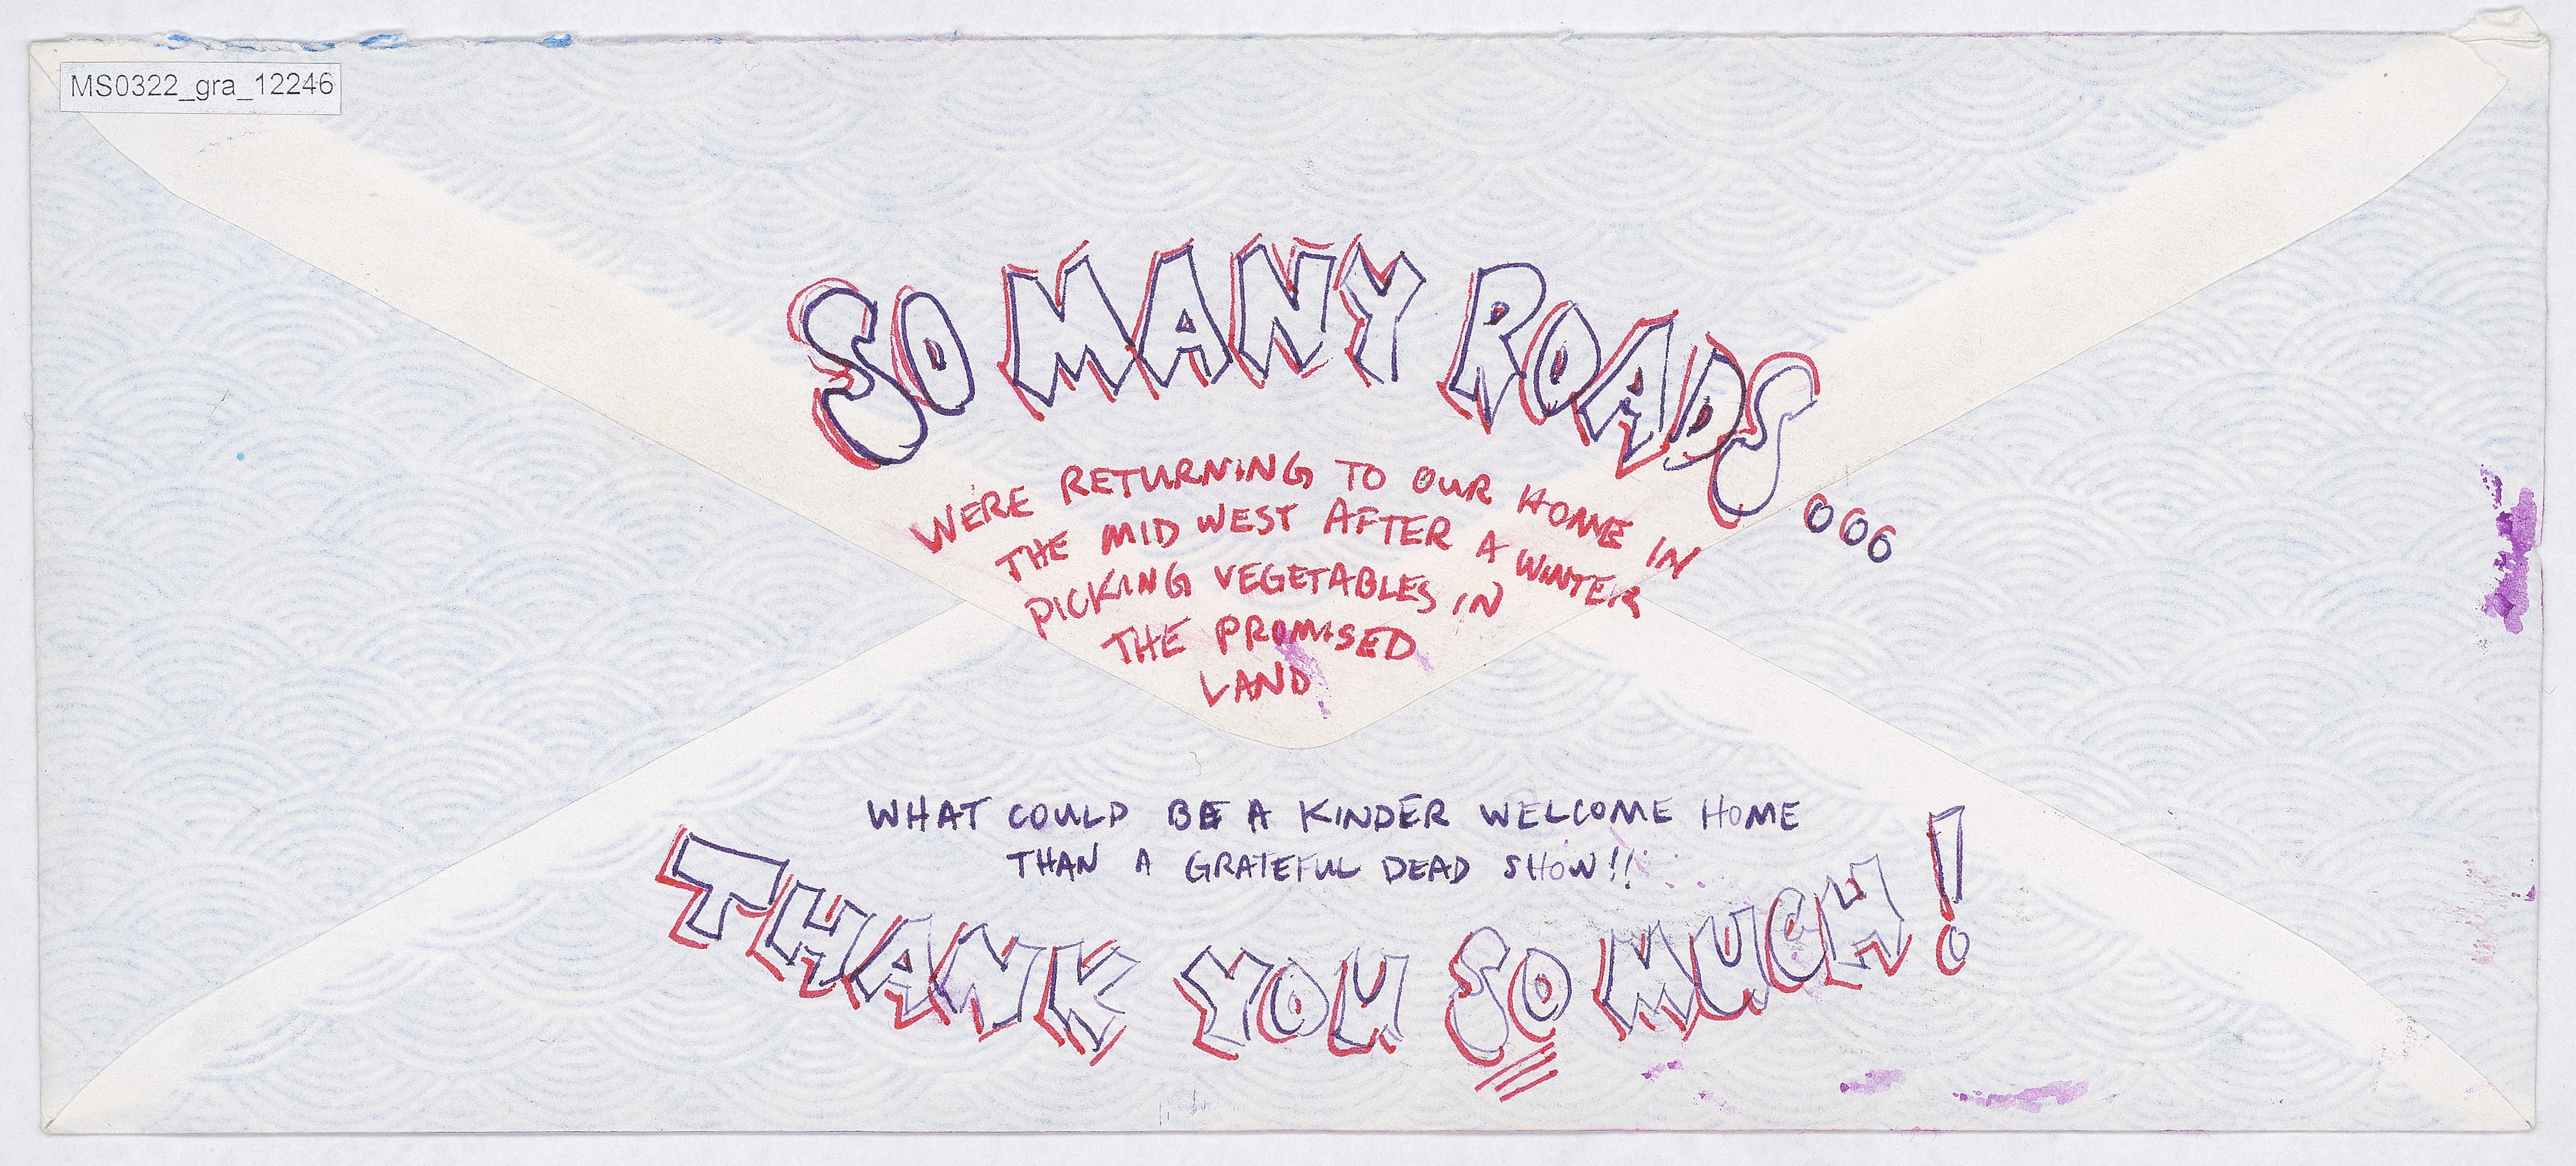 MS0322_gra_12246
SO MANY ROADS...
WE'RE RETURNING TO OUR HOME IN
THE MID WEST AFTER A WINTER
PICKING VEGETABLES IN
THE PROMISED
LAND
WHAT COULD BE A KINDER WELCOME HOME
THAN A GRATEFUL DEAD SHOW!!
THANK YOU SO MUCH!